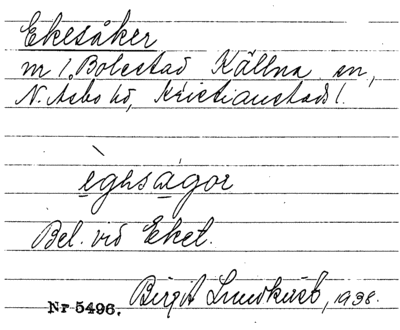 Ekesåker
m 1. Bolestad Källna sn,
N. Åsbo hd, Kristianstads l.
ègəsågor
Bel. vid Eket.
Birgit Lundkvist, 1938.
Nr 5496.